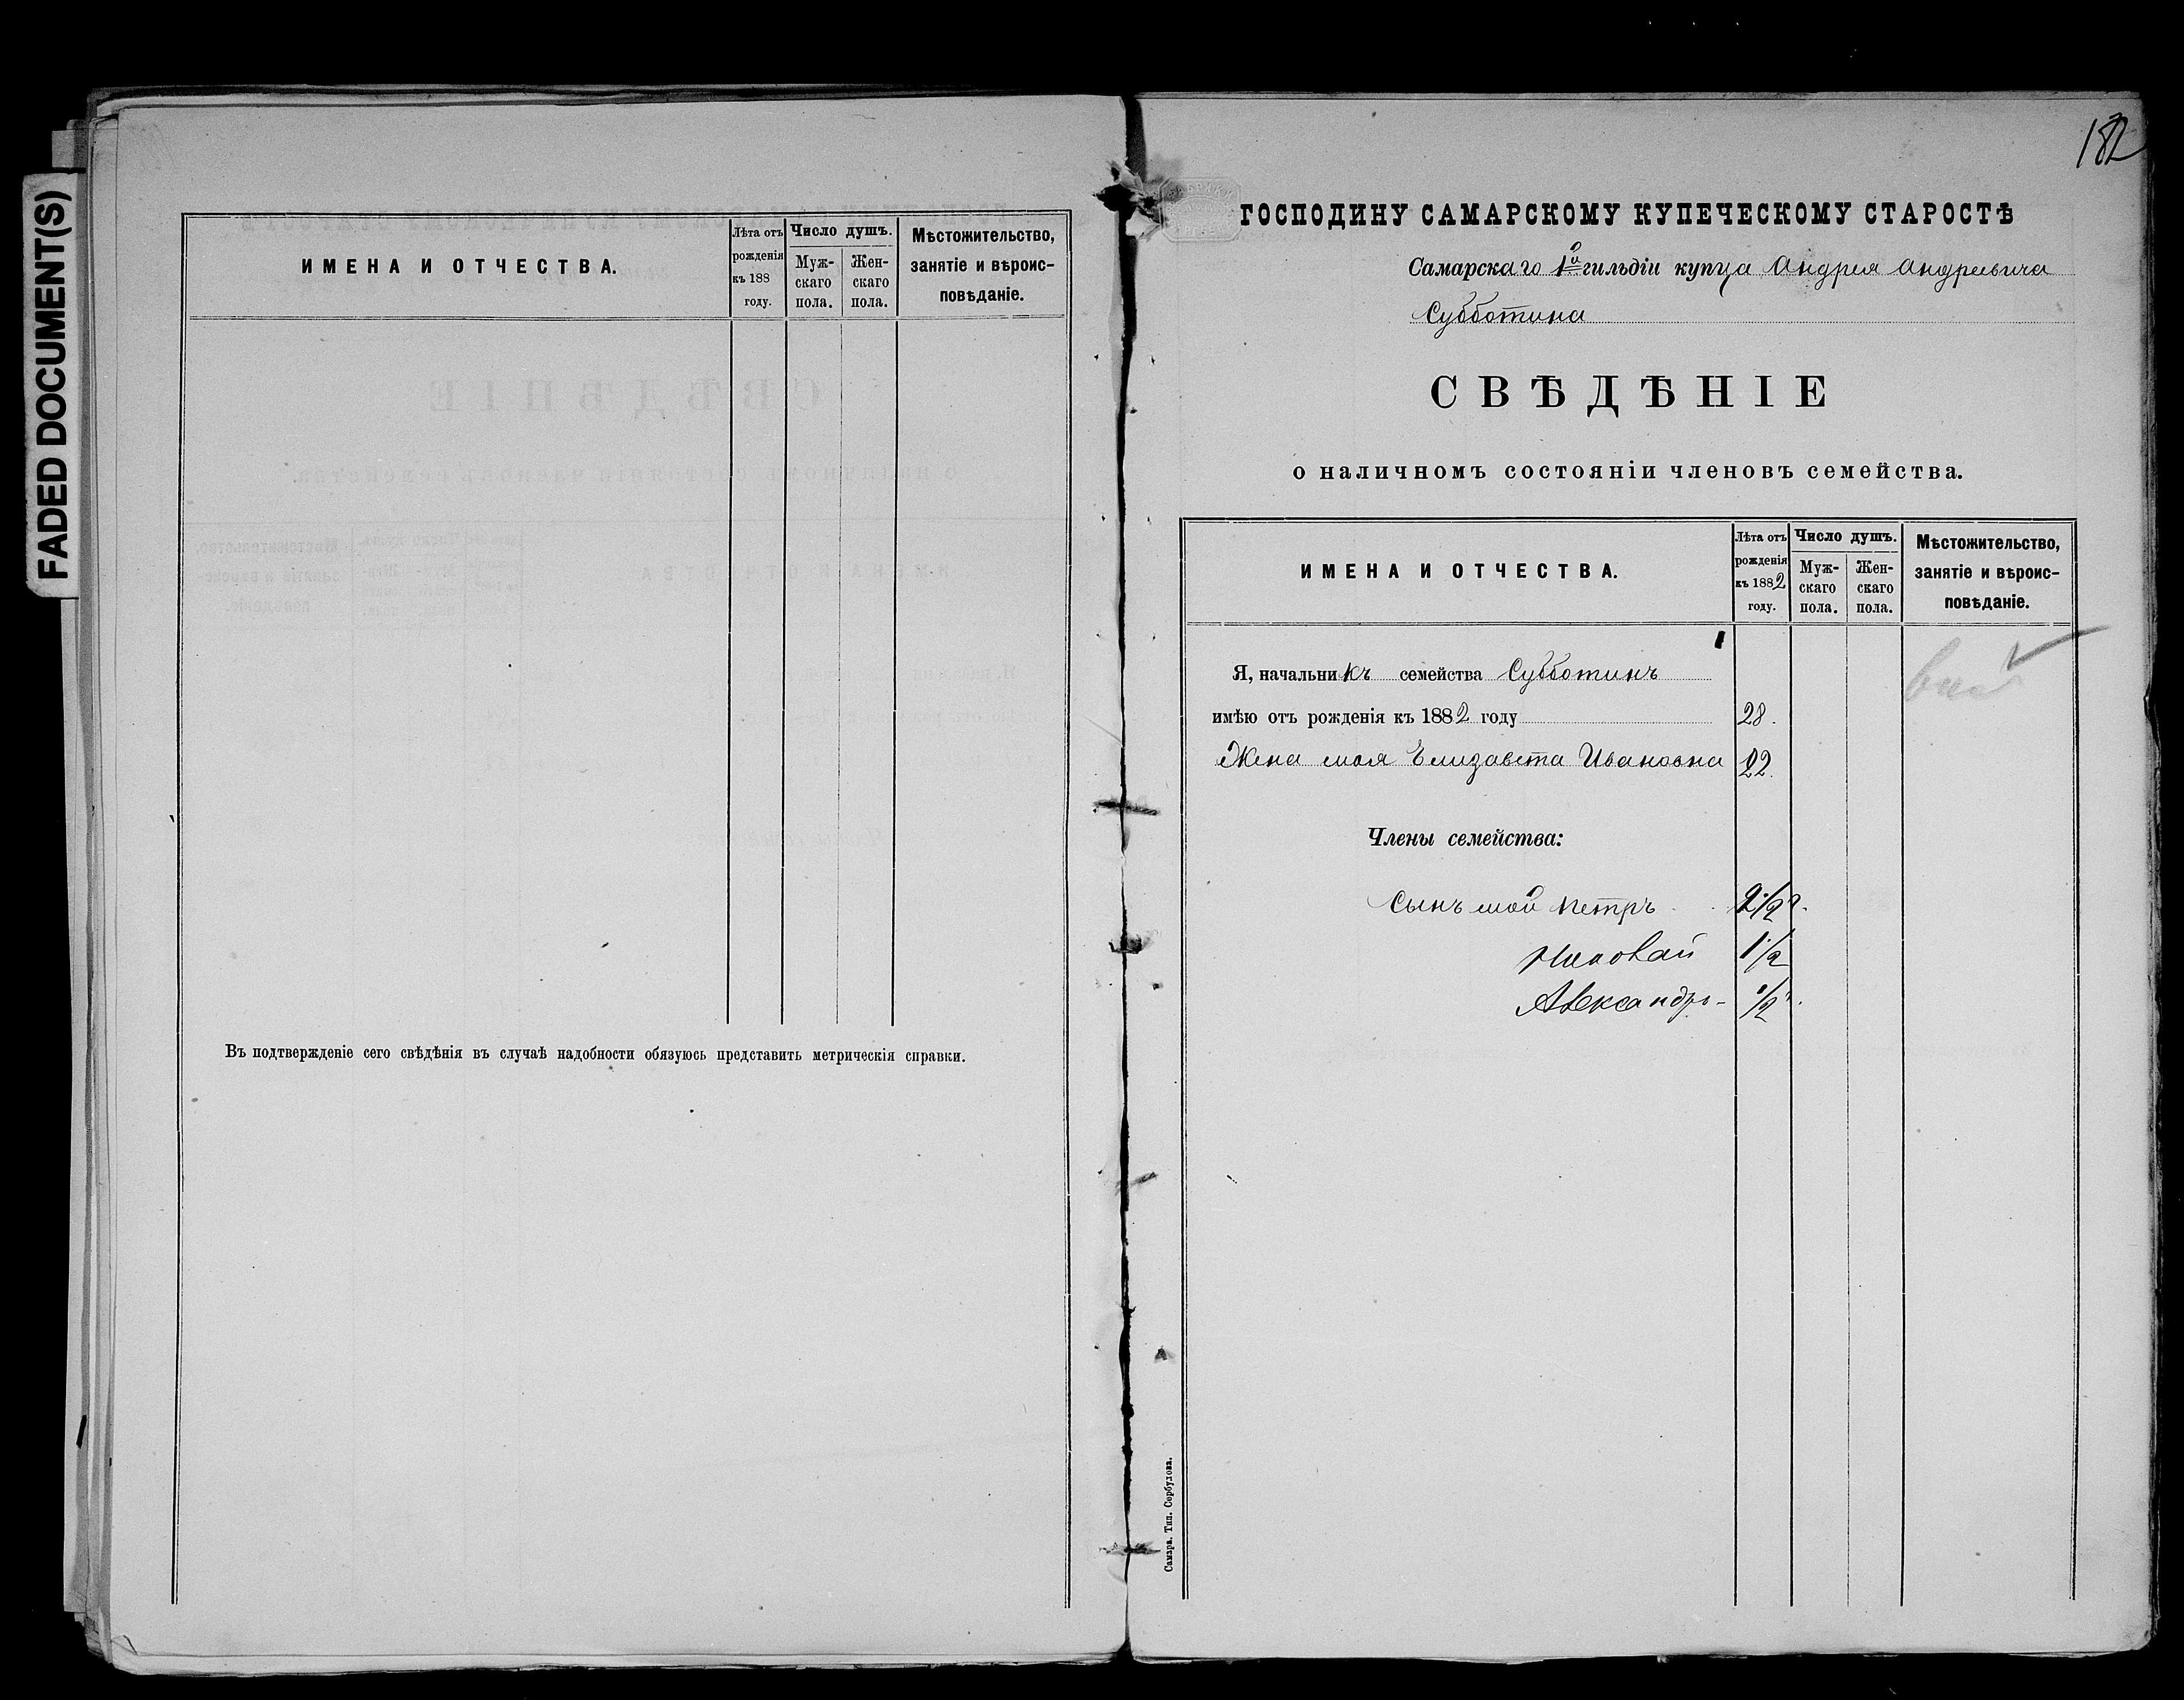 FADED DOCUMENT(S)
ИМЕНА И ОТЧЕСТВА.
Лѣта отъ рожденія къ 188 году.
Число душъ.
Мужскаго пола.
Женскаго пола.
Мѣстожительство, занятіе и вѣроисповѣданіе.
Въ подтвержденіе сего свѣдѣнія въ случаѣ надобности обязуюсь представить метрическія справки.
182
ГОСПОДИНУ САМАРСКОМУ КУПЕЧЕСКОМУ СТАРОСТѢ
Самарскаго 1й гильдіи купца Андрея Андреевича
Субботина
СВѢДѢНІЕ
о наличномъ состояніи членовъ семейства.
ИМЕНА И ОТЧЕСТВА.
Лѣта отъ рожденія къ 1882 году.
Число душъ.
Мужскаго пола.
Женскаго пола.
Мѣстожительство, занятіе и вѣроисповѣданіе.
Я, начальникъ семейства Субботинъ
имѣю отъ рожденія къ 1882 году 28.
Жена моя Елизавета Ивановна 22.
Члены семейства:
Сынъ мой Петръ 2 1/2
Николай 1 1/2
Александръ 1/2
Самара. Тип. Сербулова.